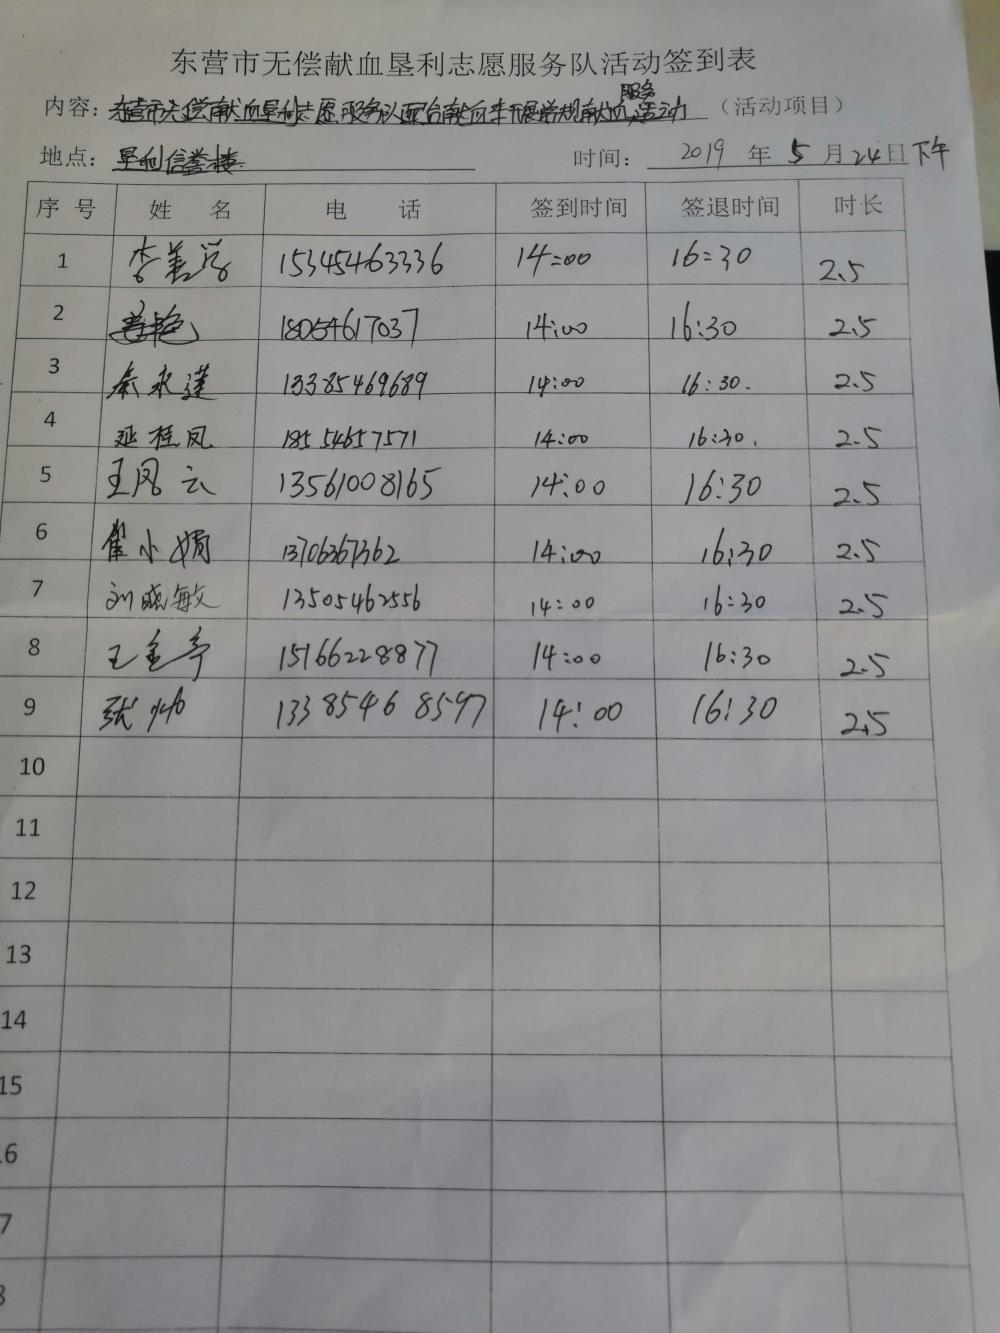 东营市无偿献血垦利志愿服务队活动签到表
服务
内容：东营市无偿献血垦利志愿服务队配合献血车开展常规献血活动（活动项目）
地点：垦利信誉楼 时间：2019 年 5 月 24 日下午
序 号 姓 名 电 话 签到时间 签退时间 时长
1 李 15345463336 14:00 16:30 2.5
2 18054617037 14:00 16:30 2.5
3 永莲 13385469689 14:00 16:30. 2.5
4 桂凤 18554657571 14:00 16:30. 2.5
5 王凤云 13561008165 14:00 16:30 2.5
6 崔小娟 13706367362 14:00 16:30 2.5
7 刘晓敏 13505462556 14:00 16:30 2.5
8 王金亭 15166228877 14:00 16:30 2.5
9 张 13385468597 14:00 16:30 2.5
10
11
12
13
14
15
16
7
8